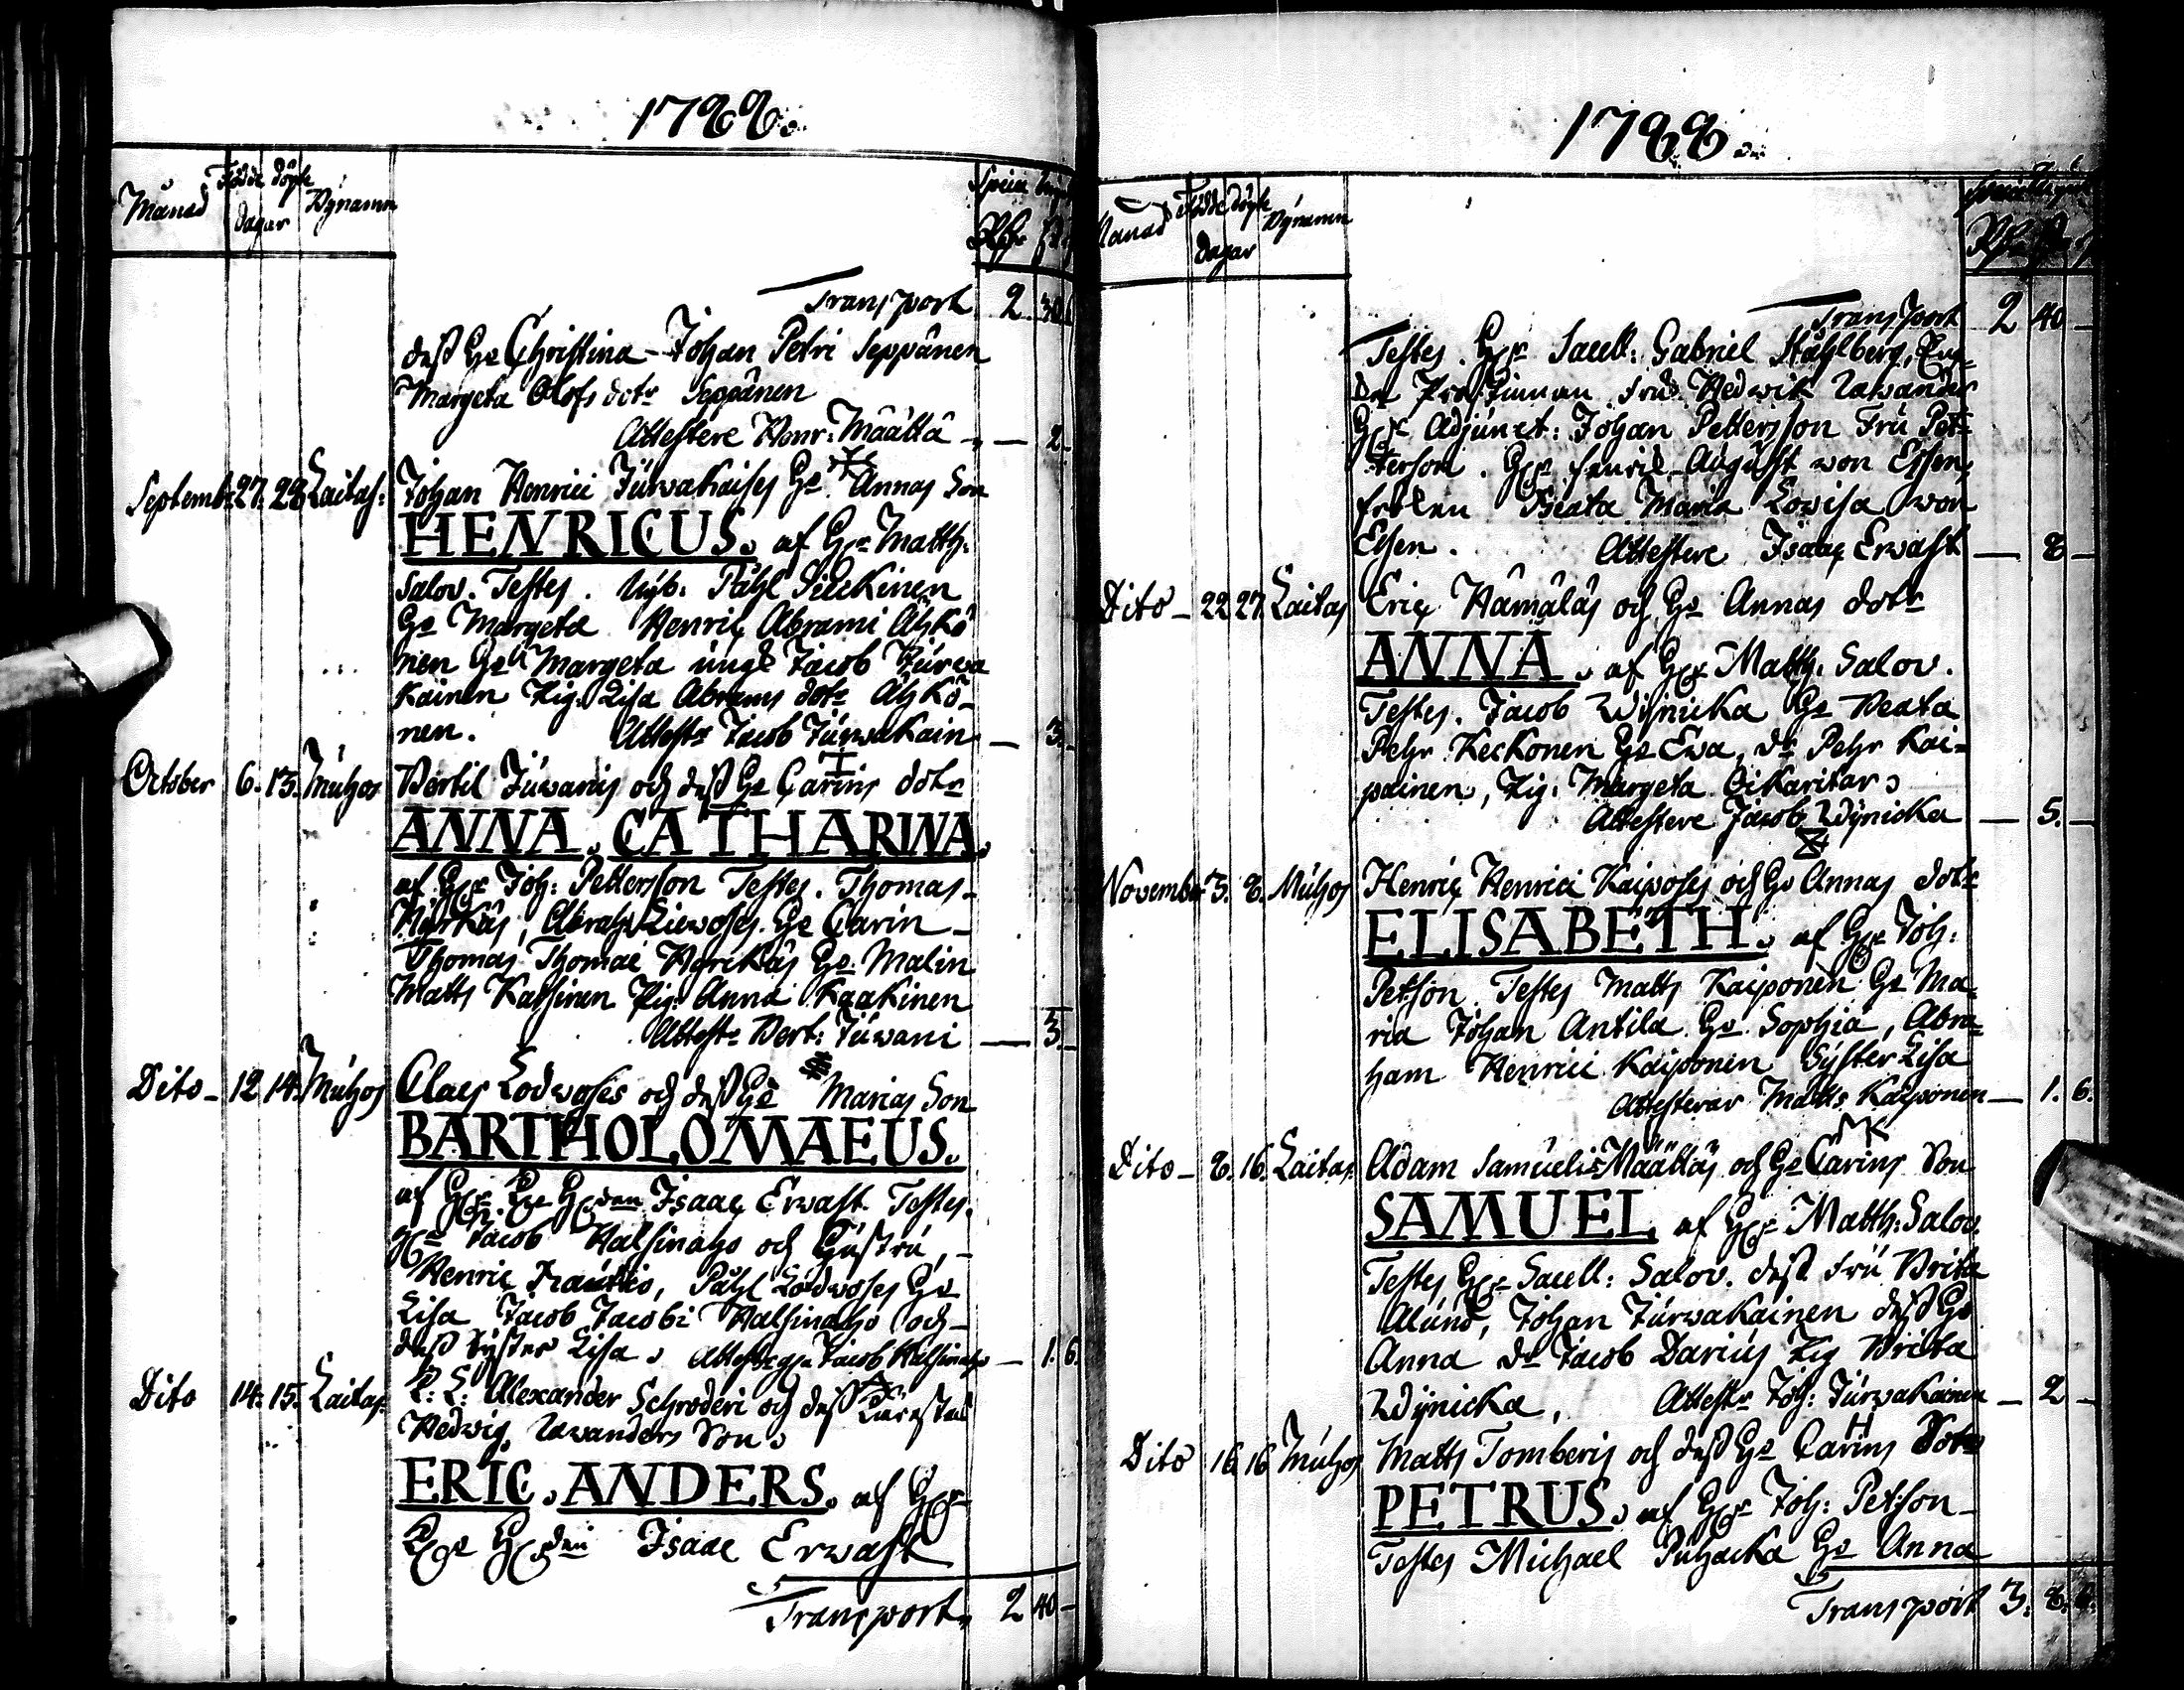 1788.
Månad Födde döpte Dagar Bynamn
Transport 2
dess Hu Christina - Johan Petri Seppänen
Margeta Olofs dotr Seppänen
Attestere Henr: Määttä — 2
Septemb: 27. 28. Laitas: Johan Henrici Jurwakaises Hu Annas Son
HENRICUS. af Hr Matth:
Salov. Testes. Påhl
Hu Margeta Henric Abrami Ahkö
nen Hu Margeta ungk Jacob Jurwa
kainen Pig. Lisa Abrams dotr Ahkö-
nen. Attestr Jacob Jurwakain — 3.
October 6. 13. Muhos Bertil Juwanis och dess Hu Carins dotr
ANNA. CATHARINA.
af Hr Joh: Pettersson Testes. Thomas
Hyrkäs, Abrah Hu Carin -
Thomas Thomae Hyrkäs Hu Malin
Matts Karhinen Pig. Anna Kaakinen
Attestr Bert: Juwani — 3.
Dito - 12 14. Muhos Claes Lodwoses och dess Hu Marias Son
BARTHOLOMAEUS.
af Isaac Erwast. Testes.
Hr Jacob Halsinaho och Hustru, -
Henric Rautio, Påhl Lodwoses Hu
Lisa Jacob Jacobi Halsinaho och -
dess Syster Lisa. Jacob Halsinaho — 1. 6.
Dito 14. 15. Laitas. Alexander Schroderi och dess
Hedwig Uwanders Son.
ERIC. ANDERS. af Hr
Isaac Erwast
Transport 2 40 -
1788.
Månad Födde döpte Dagar Bynamn
Transport 2 40 -
Testes. Hr Sacell: Gabriel Ståhlberg,
Prostinnan Fru Hedwik Uwander
Hr Adjunct: Johan Pettersson Fru Pet-
terson. Hr August von Essen,
fröken Beata Maria Lovisa von
Essen. Attestere Isaac Erwast — 8 —
Dito - 22 27. Laitas Eric Hämäläs och Hu Annas dotr
ANNA. af Hr Matth: Salov.
Testes. Jacob Wijnicka Hu Beata
Pehr Keckonen Hu Ewa, dr Pehr Kai-
painen, Pig: Margeta Oikaritar.
Attestere Jacob Wijnicka — 5. —
November 3. 8. Muhos Henric Henrici Kaiposes och Hu Annas dotr
ELISABETH. af Hr Joh:
Petson. Testes Matts Kaiponen Hu Ma-
ria Johan Antila Hu Sophia, Abra-
ham Henrici Kaiponen Syster Lisa
Attesterar Matts Kaiponen — 1. 6.
Dito - 8. 16. Laitas. Adam Samuelis Määttäs och Hu Carins Son
SAMUEL af Hr Matth: Salov.
Testes Hr Sacell: Salov. dess Fru Brita
Alund, Johan Jurwakainen dess Hu
Anna dr Jacob Darius Pig Brita
Wijnicka, Attestr Joh: Jurwakainen — 2 —
Dito 16 16 Muhos Matts Tomberis och dess Hu Carins
PETRUS. af Hr Joh: Petson -
Testes Michael Puhacka Hu Anna
Transport 3. 8.